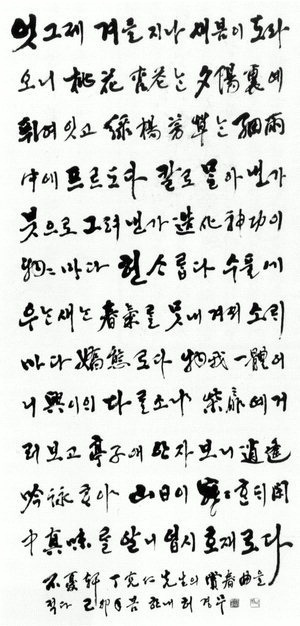 엇그제 겨을 지나 새봄이 도라
오니 桃花杏花는 夕陽裏예
퓌여 잇고 綠楊芳草는 細雨
中에 프르도다 칼로 몰아 낸가
붓으로 그려 낸가 造化神功이
物物마다 헌소롭다 수풀에
우는 새는 春氣를 못내 겨워 소릐
마다 嬌態로다 物我一體어
니 興이의 다를소냐 柴扉예 거
러보고 亭子애 안자보니 逍遙
吟詠하야 山日이 寂寂한듸 閑
中真味를 알니 업시 호재로다
不憂軒 丁克仁 先生의 賞春曲을
적다 己卯 봄